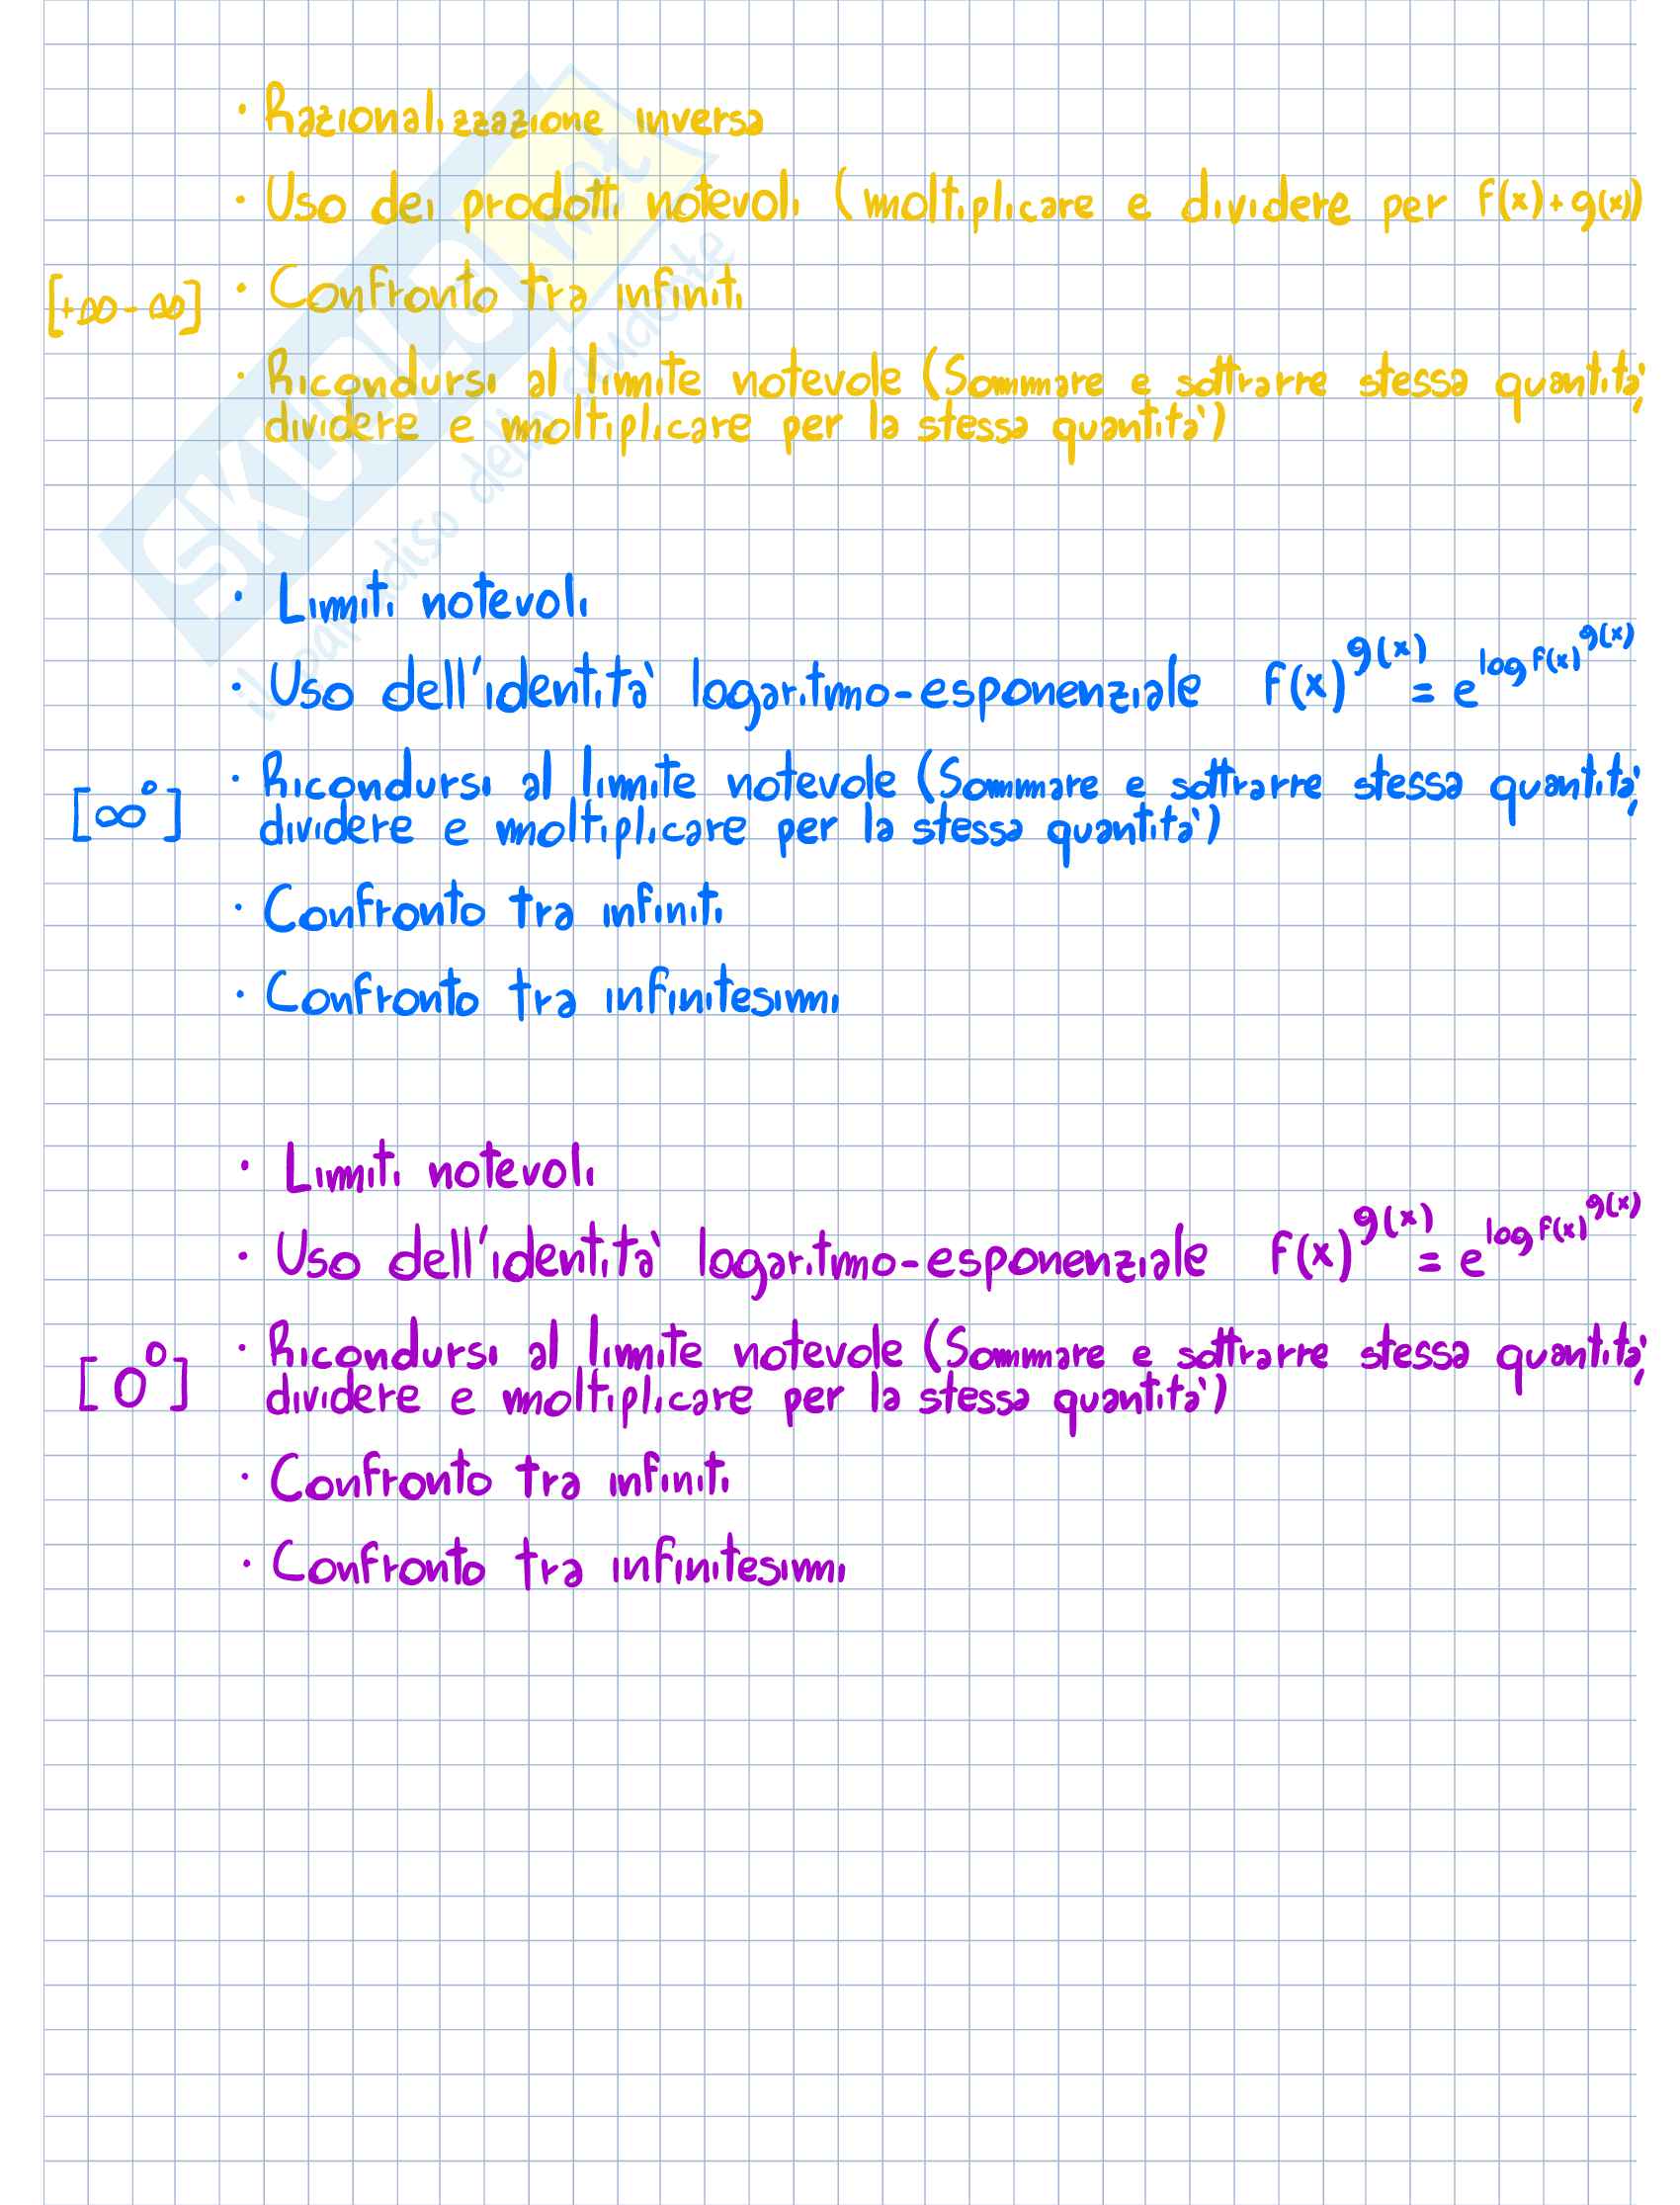 · Razionalizzazione inversa
· Uso dei prodotti notevoli (moltiplicare e dividere per f(x)+g(x))
[+∞-∞] · Confronto tra infiniti
· Ricondursi al limite notevole (Sommare e sottrarre stessa quantità,
dividere e moltiplicare per la stessa quantità)
· Limiti notevoli
· Uso dell'identità logaritmo-esponenziale f(x)^g(x) = e^log f(x)^g(x)
[∞⁰] · Ricondursi al limite notevole (Sommare e sottrarre stessa quantità,
dividere e moltiplicare per la stessa quantità)
· Confronto tra infiniti
· Confronto tra infinitesimi
· Limiti notevoli
· Uso dell'identità logaritmo-esponenziale f(x)^g(x) = e^log f(x)^g(x)
[0⁰] · Ricondursi al limite notevole (Sommare e sottrarre stessa quantità,
dividere e moltiplicare per la stessa quantità)
· Confronto tra infiniti
· Confronto tra infinitesimi
SKUOLA.net
il paradiso dello studente